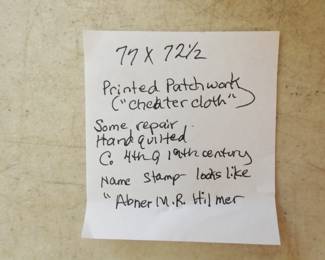 77 X 72 1/2
Printed Patchwork
("cheater cloth")
Some repair
Hand quilted
C. 4th Q 19th century
Name Stamp looks like
"Abner M.R. Hilmer